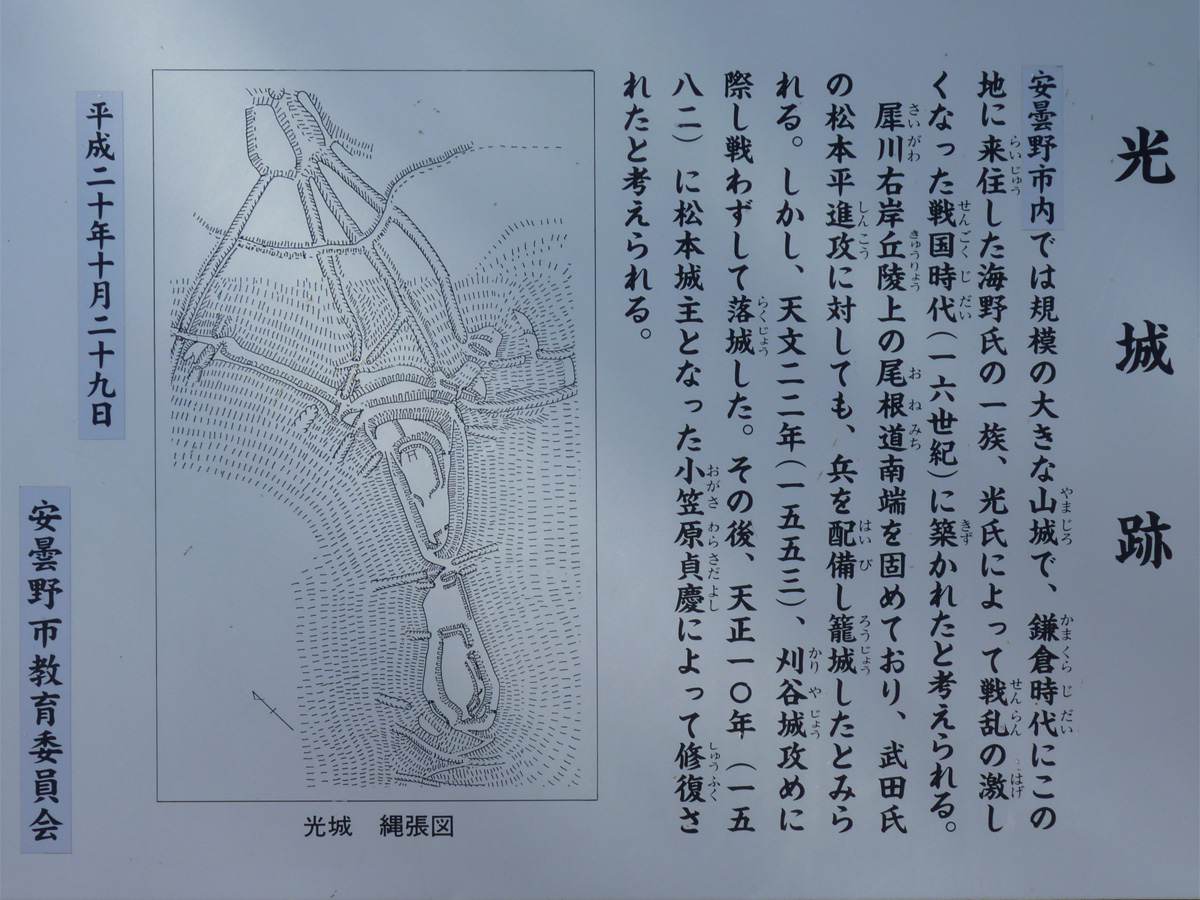 光城跡
安曇野市内では規模の大きな山城で、鎌倉時代にこの
地に来住した海野氏の一族、光氏によって戦乱の激し
くなった戦国時代(一六世紀)に築かれたと考えられる。
犀川右岸丘陵上の尾根道南端を固めており、武田氏
の松本平進攻に対しても、兵を配備し籠城したとみら
れる。しかし、天文二二年(一五五三)、刈谷城攻めに
際し戦わずして落城した。その後、天正一〇年(一五
八二)に松本城主となった小笠原貞慶によって修復さ
れたと考えられる。
光城 縄張図
平成二十年十月二十九日
安曇野市教育委員会